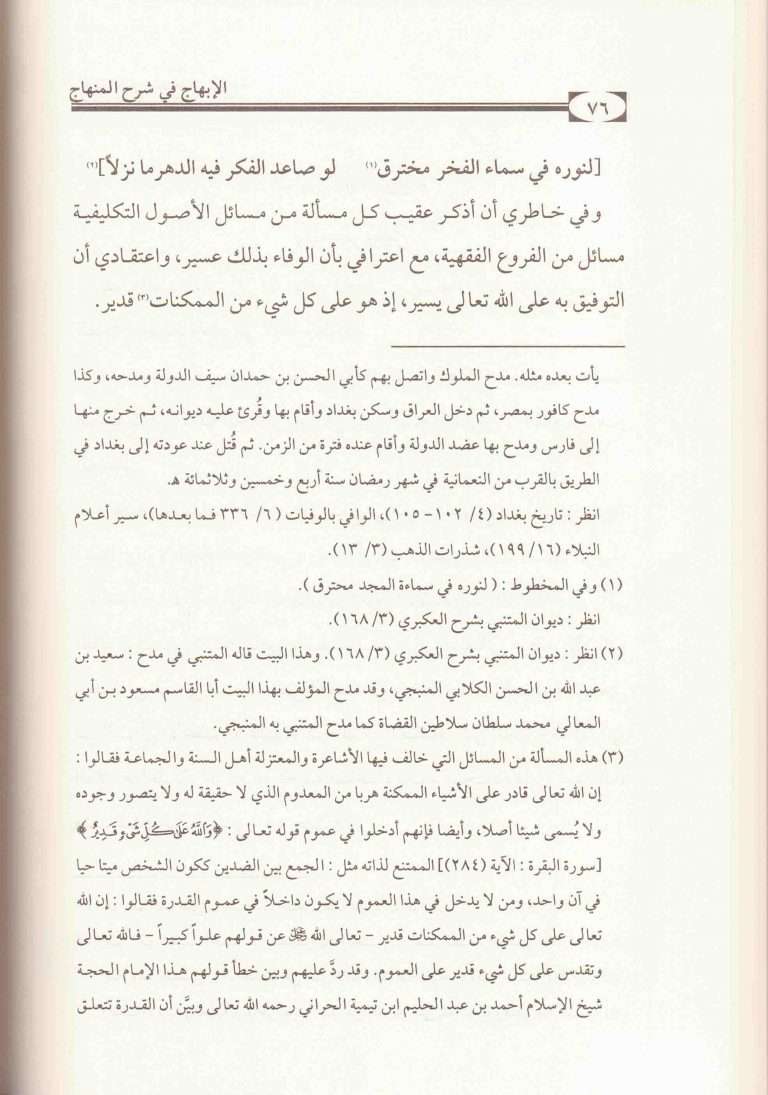 الإبهاج في شرح المنهاج
٧٦
[لنوره في سماء الفخر مخترق(١) لو صاعد الفكر فيه الدهر ما نزلاً](٢)
وفي خاطري أن أذكر عقيب كل مسألة من مسائل الأصول التكليفية
مسائل من الفروع الفقهية، مع اعترافي بأن الوفاء بذلك عسير، واعتقادي أن
التوفيق به على الله تعالى يسير، إذ هو على كل شيء من الممكنات(٣) قدير.
يأت بعده مثله. مدح الملوك واتصل بهم كأبي الحسن بن حمدان سيف الدولة ومدحه، وكذا
مدح كافور بمصر، ثم دخل العراق وسكن بغداد وأقام بها وقُرئ عليه ديوانه، ثم خرج منها
إلى فارس ومدح بها عضد الدولة وأقام عنده فترة من الزمن. ثم قُتل عند عودته إلى بغداد في
الطريق بالقرب من النعمانية في شهر رمضان سنة أربع وخمسين وثلاثمائة هـ.
انظر : تاريخ بغداد (٤/ ١٠٢ - ١٠٥)، الوافي بالوفيات (٦/ ٣٣٦ فما بعدها)، سير أعلام
النبلاء (١٦/ ١٩٩)، شذرات الذهب (٣/ ١٣).
(١) وفي المخطوط : ( لنوره في سماءة المجد محترق ).
انظر : ديوان المتنبي بشرح العكبري (٣/ ١٦٨).
(٢) انظر : ديوان المتنبي بشرح العكبري (٣/ ١٦٨). وهذا البيت قاله المتنبي في مدح : سعيد بن
عبد الله بن الحسن الكلابي المنبجي، وقد مدح المؤلف بهذا البيت أبا القاسم مسعود بن أبي
المعالي محمد سلطان سلاطين القضاة كما مدح المتنبي به المنبجي.
(٣) هذه المسألة من المسائل التي خالف فيها الأشاعرة والمعتزلة أهل السنة والجماعة فقالوا :
إن الله تعالى قادر على الأشياء الممكنة هربا من المعدوم الذي لا حقيقة له ولا يتصور وجوده
ولا يُسمى شيئا أصلا، وأيضا فإنهم أدخلوا في عموم قوله تعالى : ﴿وَٱللَّهُ عَلَىٰ كُلِّ شَىْءٍ قَدِيرٌ﴾
[سورة البقرة : الآية (٢٨٤)] الممتنع لذاته مثل : الجمع بين الضدين ككون الشخص ميتا حيا
في آن واحد، ومن لا يدخل في هذا العموم لا يكون داخلاً في عموم القدرة فقالوا : إن الله
تعالى على كل شيء من الممكنات قدير - تعالى الله ﷻ عن قولهم علواً كبيراً - فالله تعالى
وتقدس على كل شيء قدير على العموم. وقد ردَّ عليهم وبين خطأ قولهم هذا الإمام الحجة
شيخ الإسلام أحمد بن عبد الحليم ابن تيمية الحراني رحمه الله تعالى وبيَّن أن القدرة تتعلق